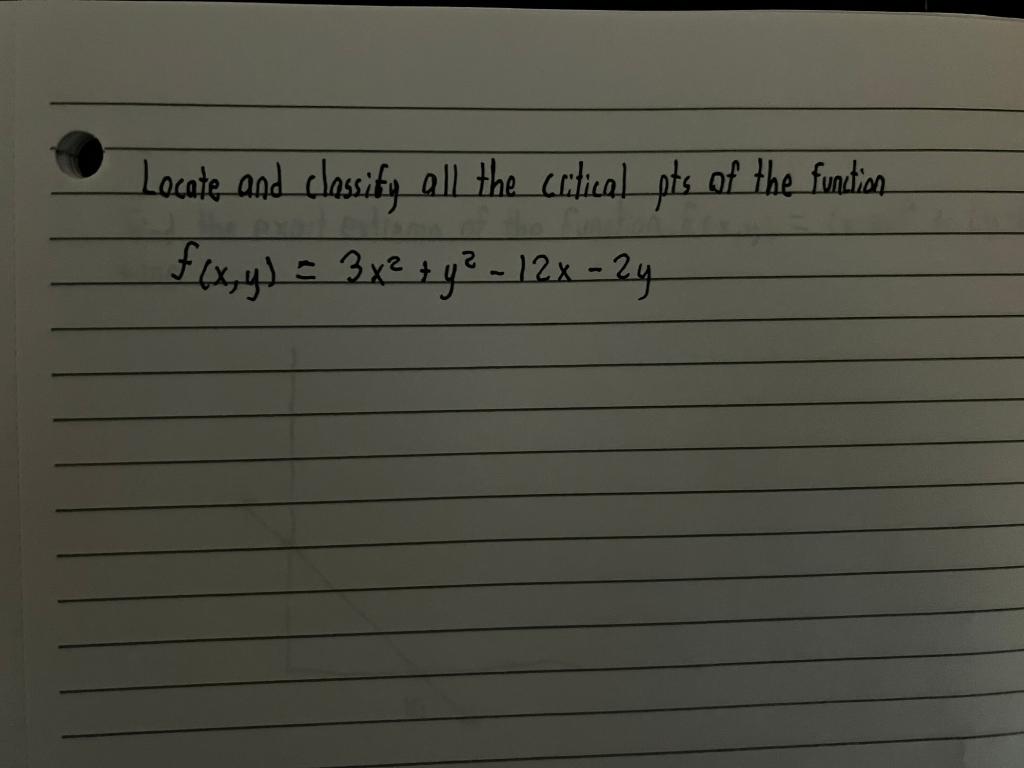 Locate and classify all the critical pts of the function
f(x,y) = 3x² + y² - 12x - 2y